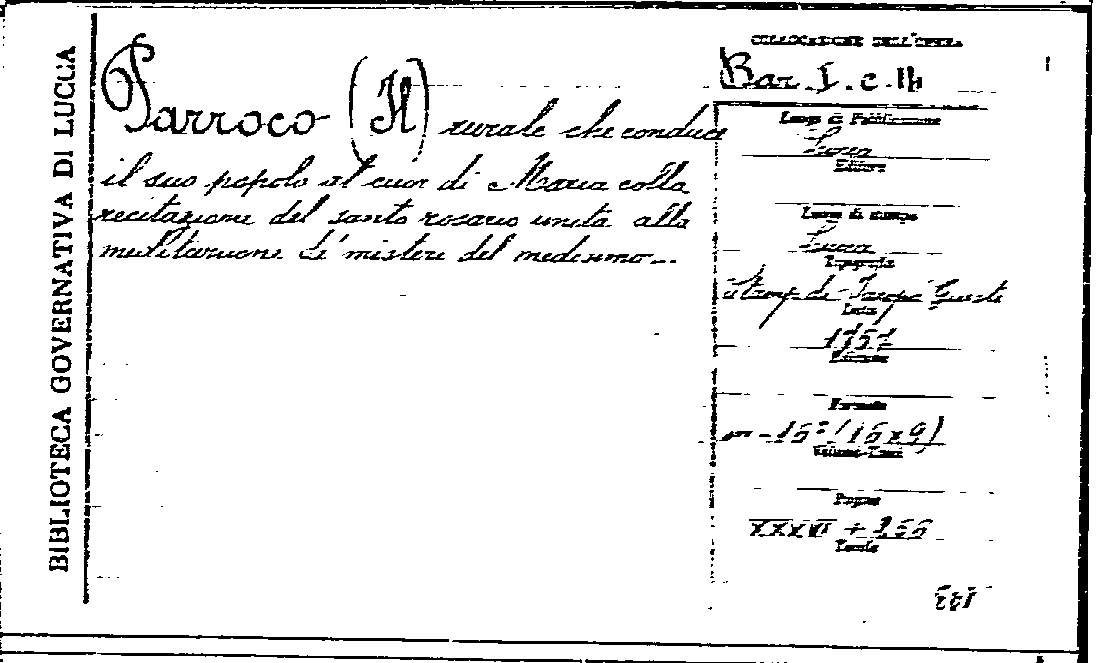 BIBLIOTECA GOVERNATIVA DI LUCCA
Parroco (Il) rurale che conduce
il suo popolo al cuor di Maria colla
recitazione del santo rosario unita alla
meditazione de' misteri del medesimo...
COLLOCAZIONE DELL'OPERA
Bar. I. c. 1b
Luogo di Pubblicazione
Lucca
Editore
Luogo di stampa
Lucca
Tipografia
Stamp. di Jacopo Giusti
Data
1757
Edizione
Formato
in-16º (16x9)
Volume-Tomi
Pagine
XXXVI + 266
Tavole